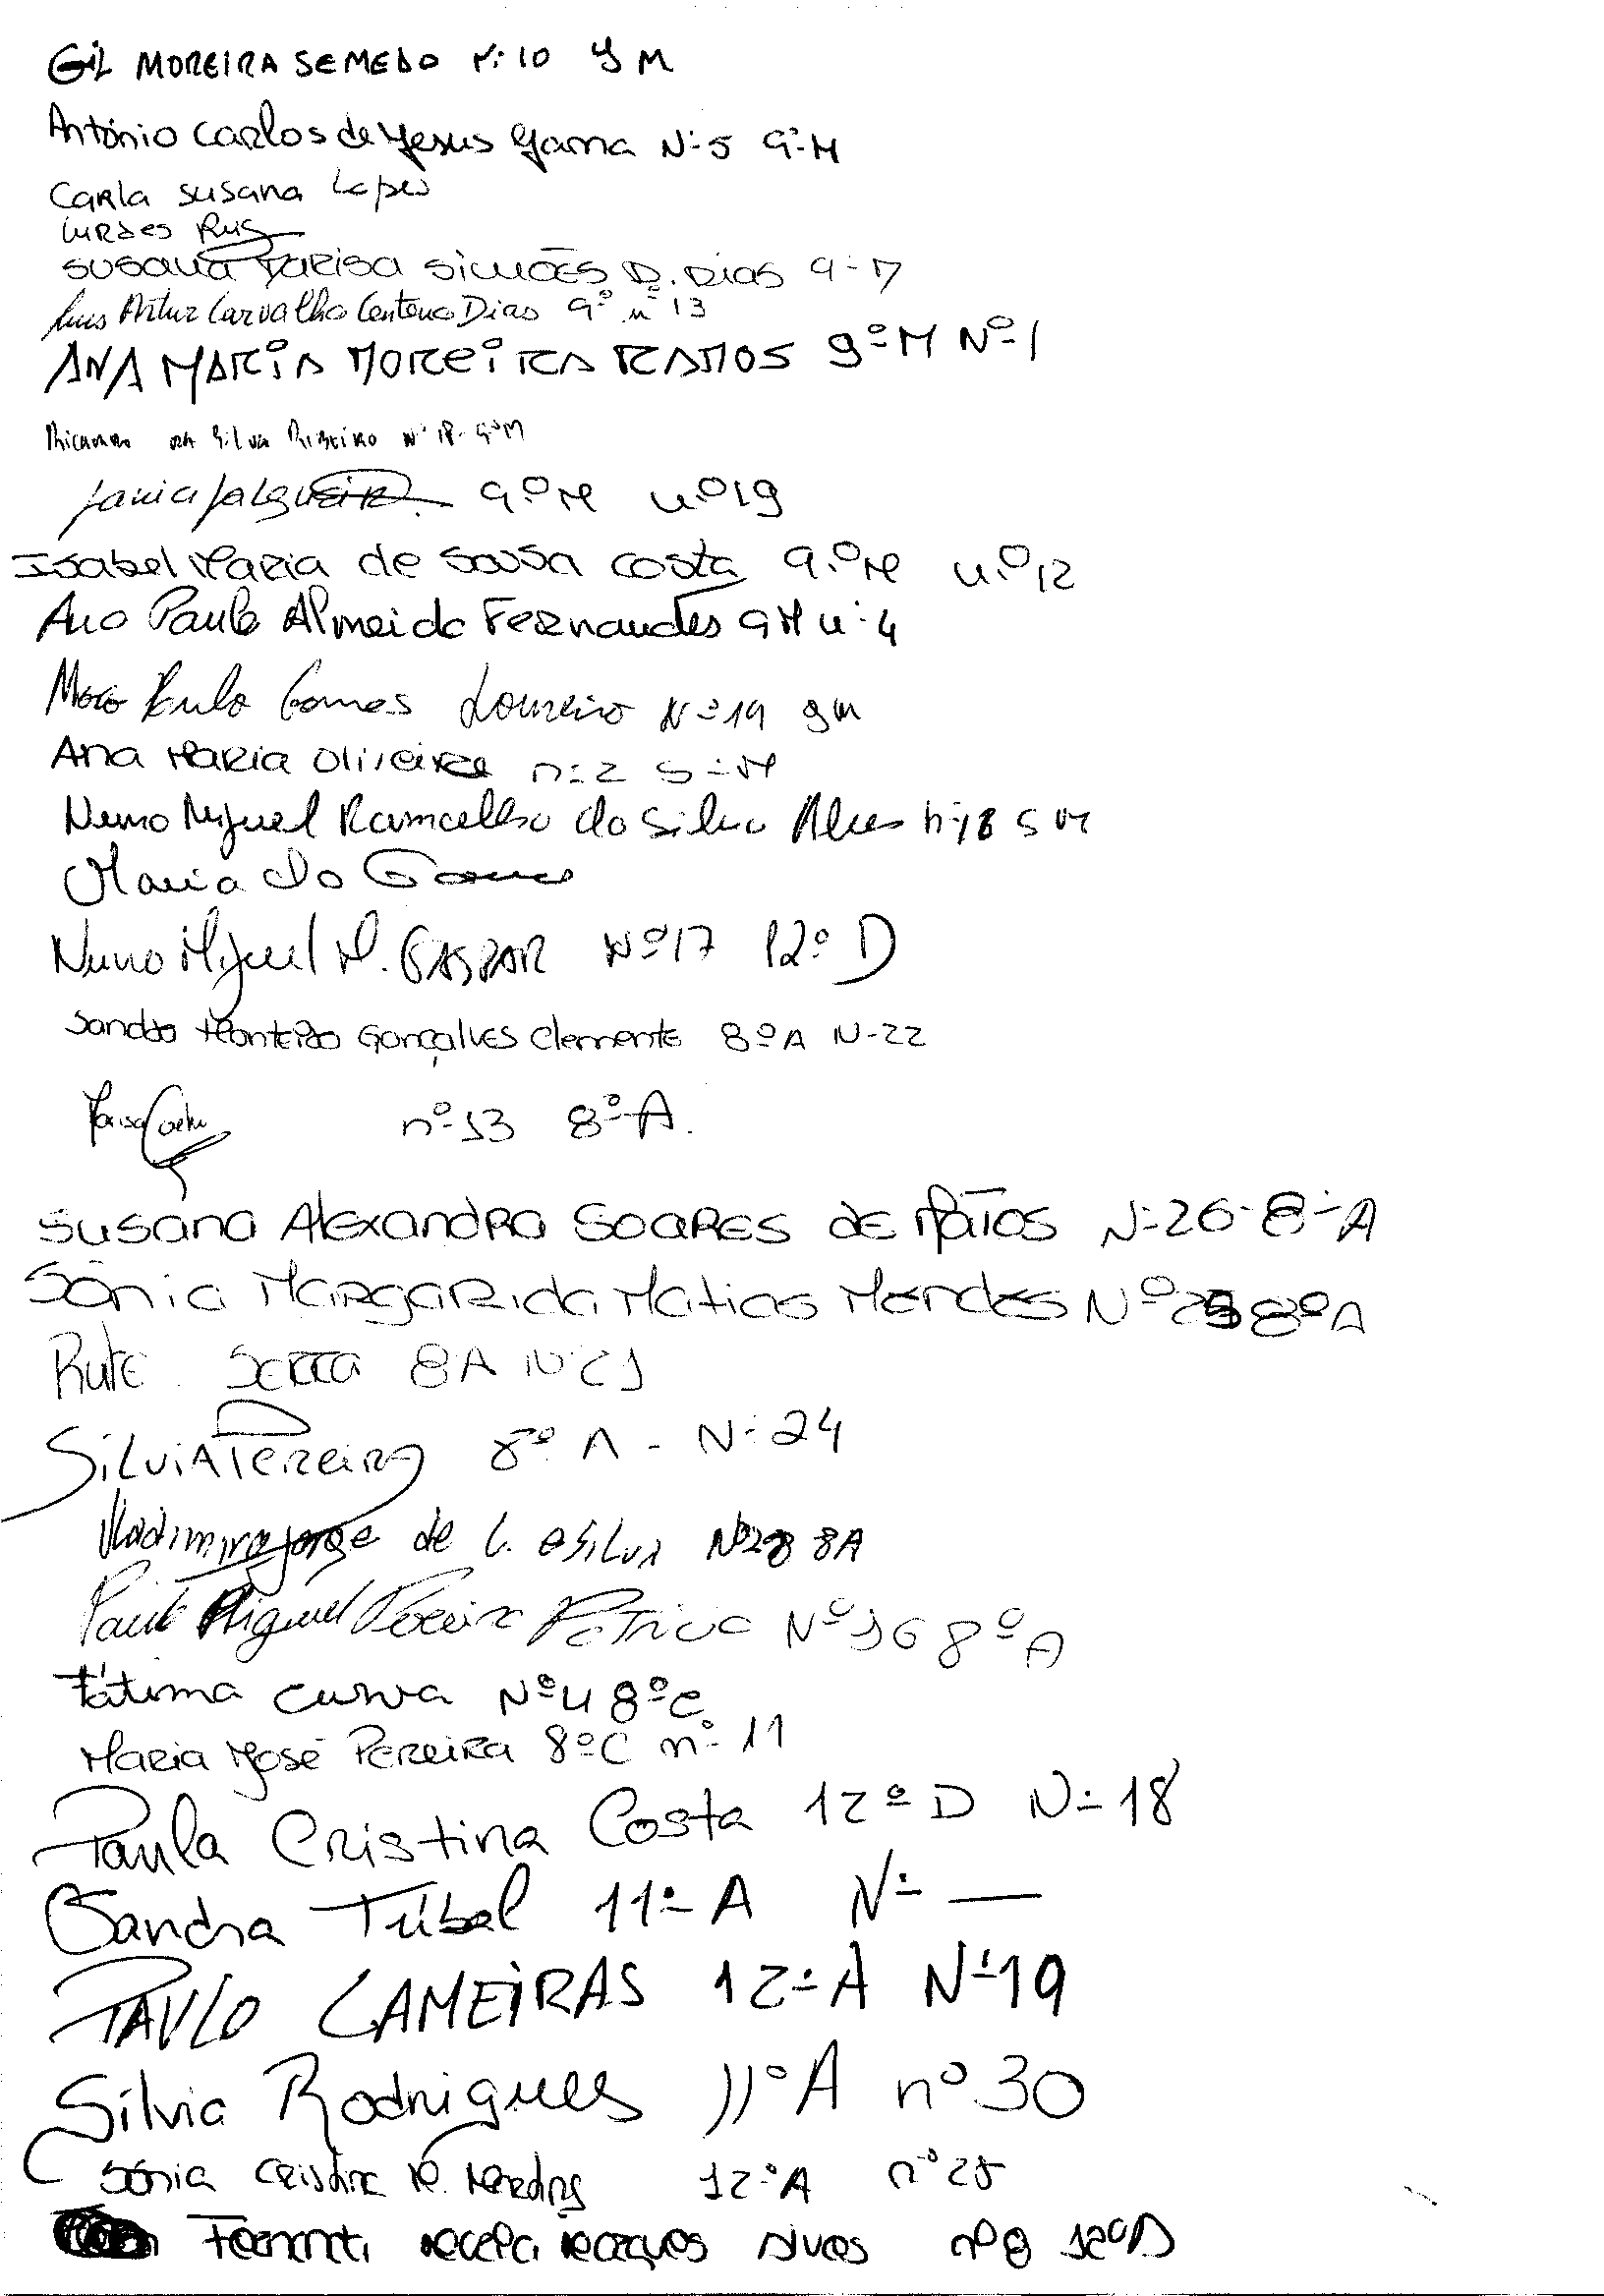 Gil MOREIRA SEMEDO Nº 10 9 M
António Carlos de Jesus Gama Nº 5 9º M
Carla Susana Lopes
Lurdes Ruis
Susana Marisa Simões D. Dias 9º M
Luis Artur Carvalho Centeno Dias 9º nº 13
ANA MARIA MOREIRA RAMOS 9º M Nº 1
Ricardo da Silva Ribeiro Nº 18 9º M
9º M nº 19
Isabel Maria de Sousa Costa 9.º M n.º 12
Ana Paula Almeida Fernandes 9 M nº 4
Paulo Gomes Loureiro Nº 19 9 M
Ana Maria Oliveira nº 2 9º M
Nuno Miguel Ramalho da Silva Alves nº 18 9 M
Maria do
Nuno Miguel M. GASPAR Nº 17 12º D
Sandra Monteiro Gonçalves Clemente 8º A N-22
Marisa Coelho nº 13 8º A.
Susana Alexandra Soares de Matos Nº 26-8º A
Sónia Margarida Matias Mendes Nº 25 8º A
Rute Serra 8 A Nº 21
Silvia Pereira 8º A - Nº 24
Vladimiro Jorge de C. e Silva Nº 28 8A
Paulo Miguel Pereira Nº 16 8º A
Fátima Cunha Nº 4 8º C
Maria José Pereira 8º C nº 11
Paula Cristina Costa 12º D Nº 18
Sandra Túbal 11º A Nº —
PAULO LAMEIRAS 12º A Nº 19
Sílvia Rodrigues 11º A nº 30
Sónia Cristina M. 12º A nº 25
nº 8 12º D